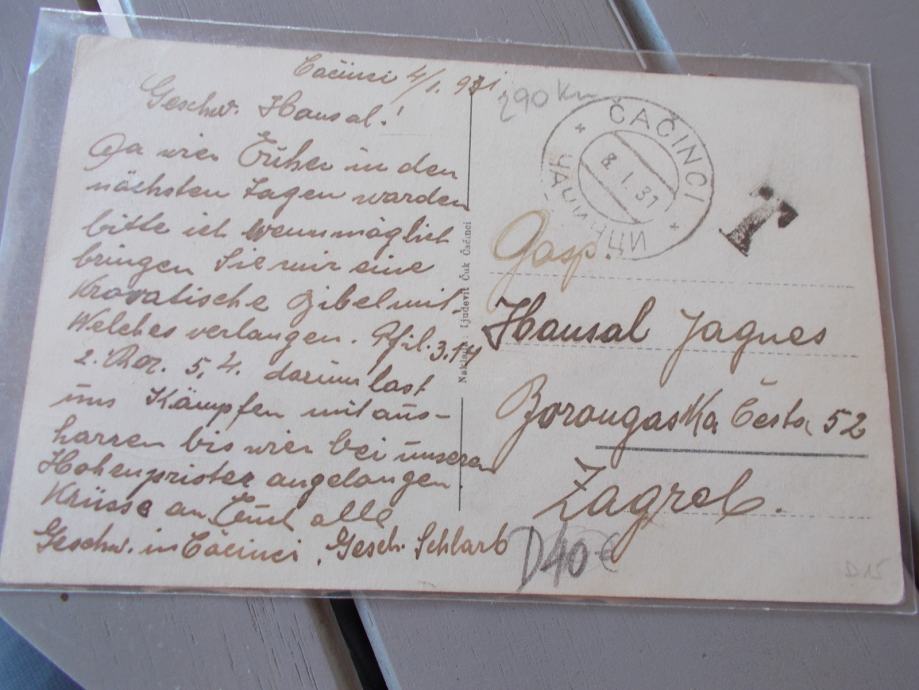 Čačinci 4/1. 931
Geschw. Hausal!
Da wier Eüher in den
nächsten Tagen warden
bitte ich wenn möglich
bringen Sie mir eine
Krovatische Bibel mit,
Welches verlangen. Phil. 3.14
2. Kor. 5,4. darum last
uns Kämpfen mit aus-
harren bis wier bei unseren
Hohenprister angelangen.
Krüsse an Euch alle
Geschw. in Čačinci, Gesch. Schlarb
Naklada Ljudevit Čuk Čačinci
290 Kn
ČAČINCI
8. I. 31
ЧАЧИНЦИ
T
Gosp.
Hausal Jagnes
Borongaska Česta 52
Zagreb.
D40€
D15